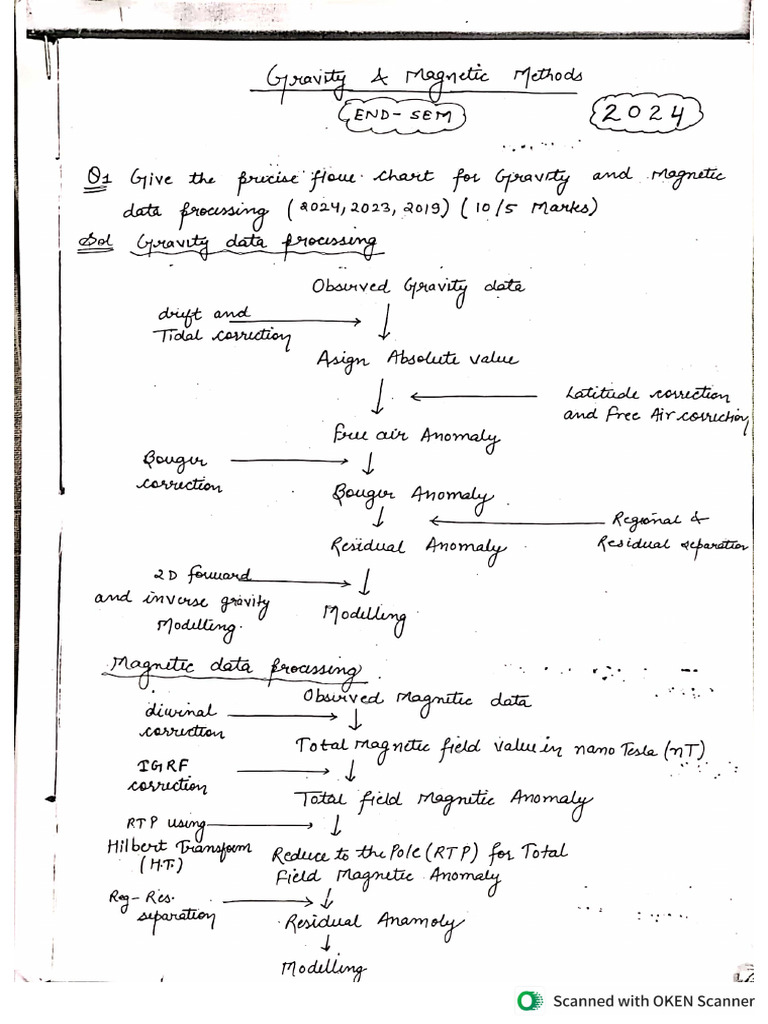 Gravity & Magnetic Methods
END-SEM
2024
Q1 Give the precise flow chart for Gravity and Magnetic
data processing (2024, 2023, 2019) (10/5 Marks)
Sol Gravity data processing
Observed Gravity data
drift and
Tidal correction
Asign Absolute value
Latitude correction
and Free Air correction
Free air Anomaly
Bouger
correction
Bouger Anomaly
Regional &
Residual separation
Residual Anomaly
2D forward
and inverse gravity
Modelling.
Modelling
Magnetic data processing
Observed Magnetic data
diurinal
correction
Total Magnetic field value in nano Tesla (nT)
IGRF
correction
Total field Magnetic Anomaly
RTP using
Hilbert Transform
(H.T.)
Reduce to the Pole (RTP) for Total
Field Magnetic Anomaly
Reg-Res.
separation
Residual Anamoly
Modelling
Scanned with OKEN Scanner